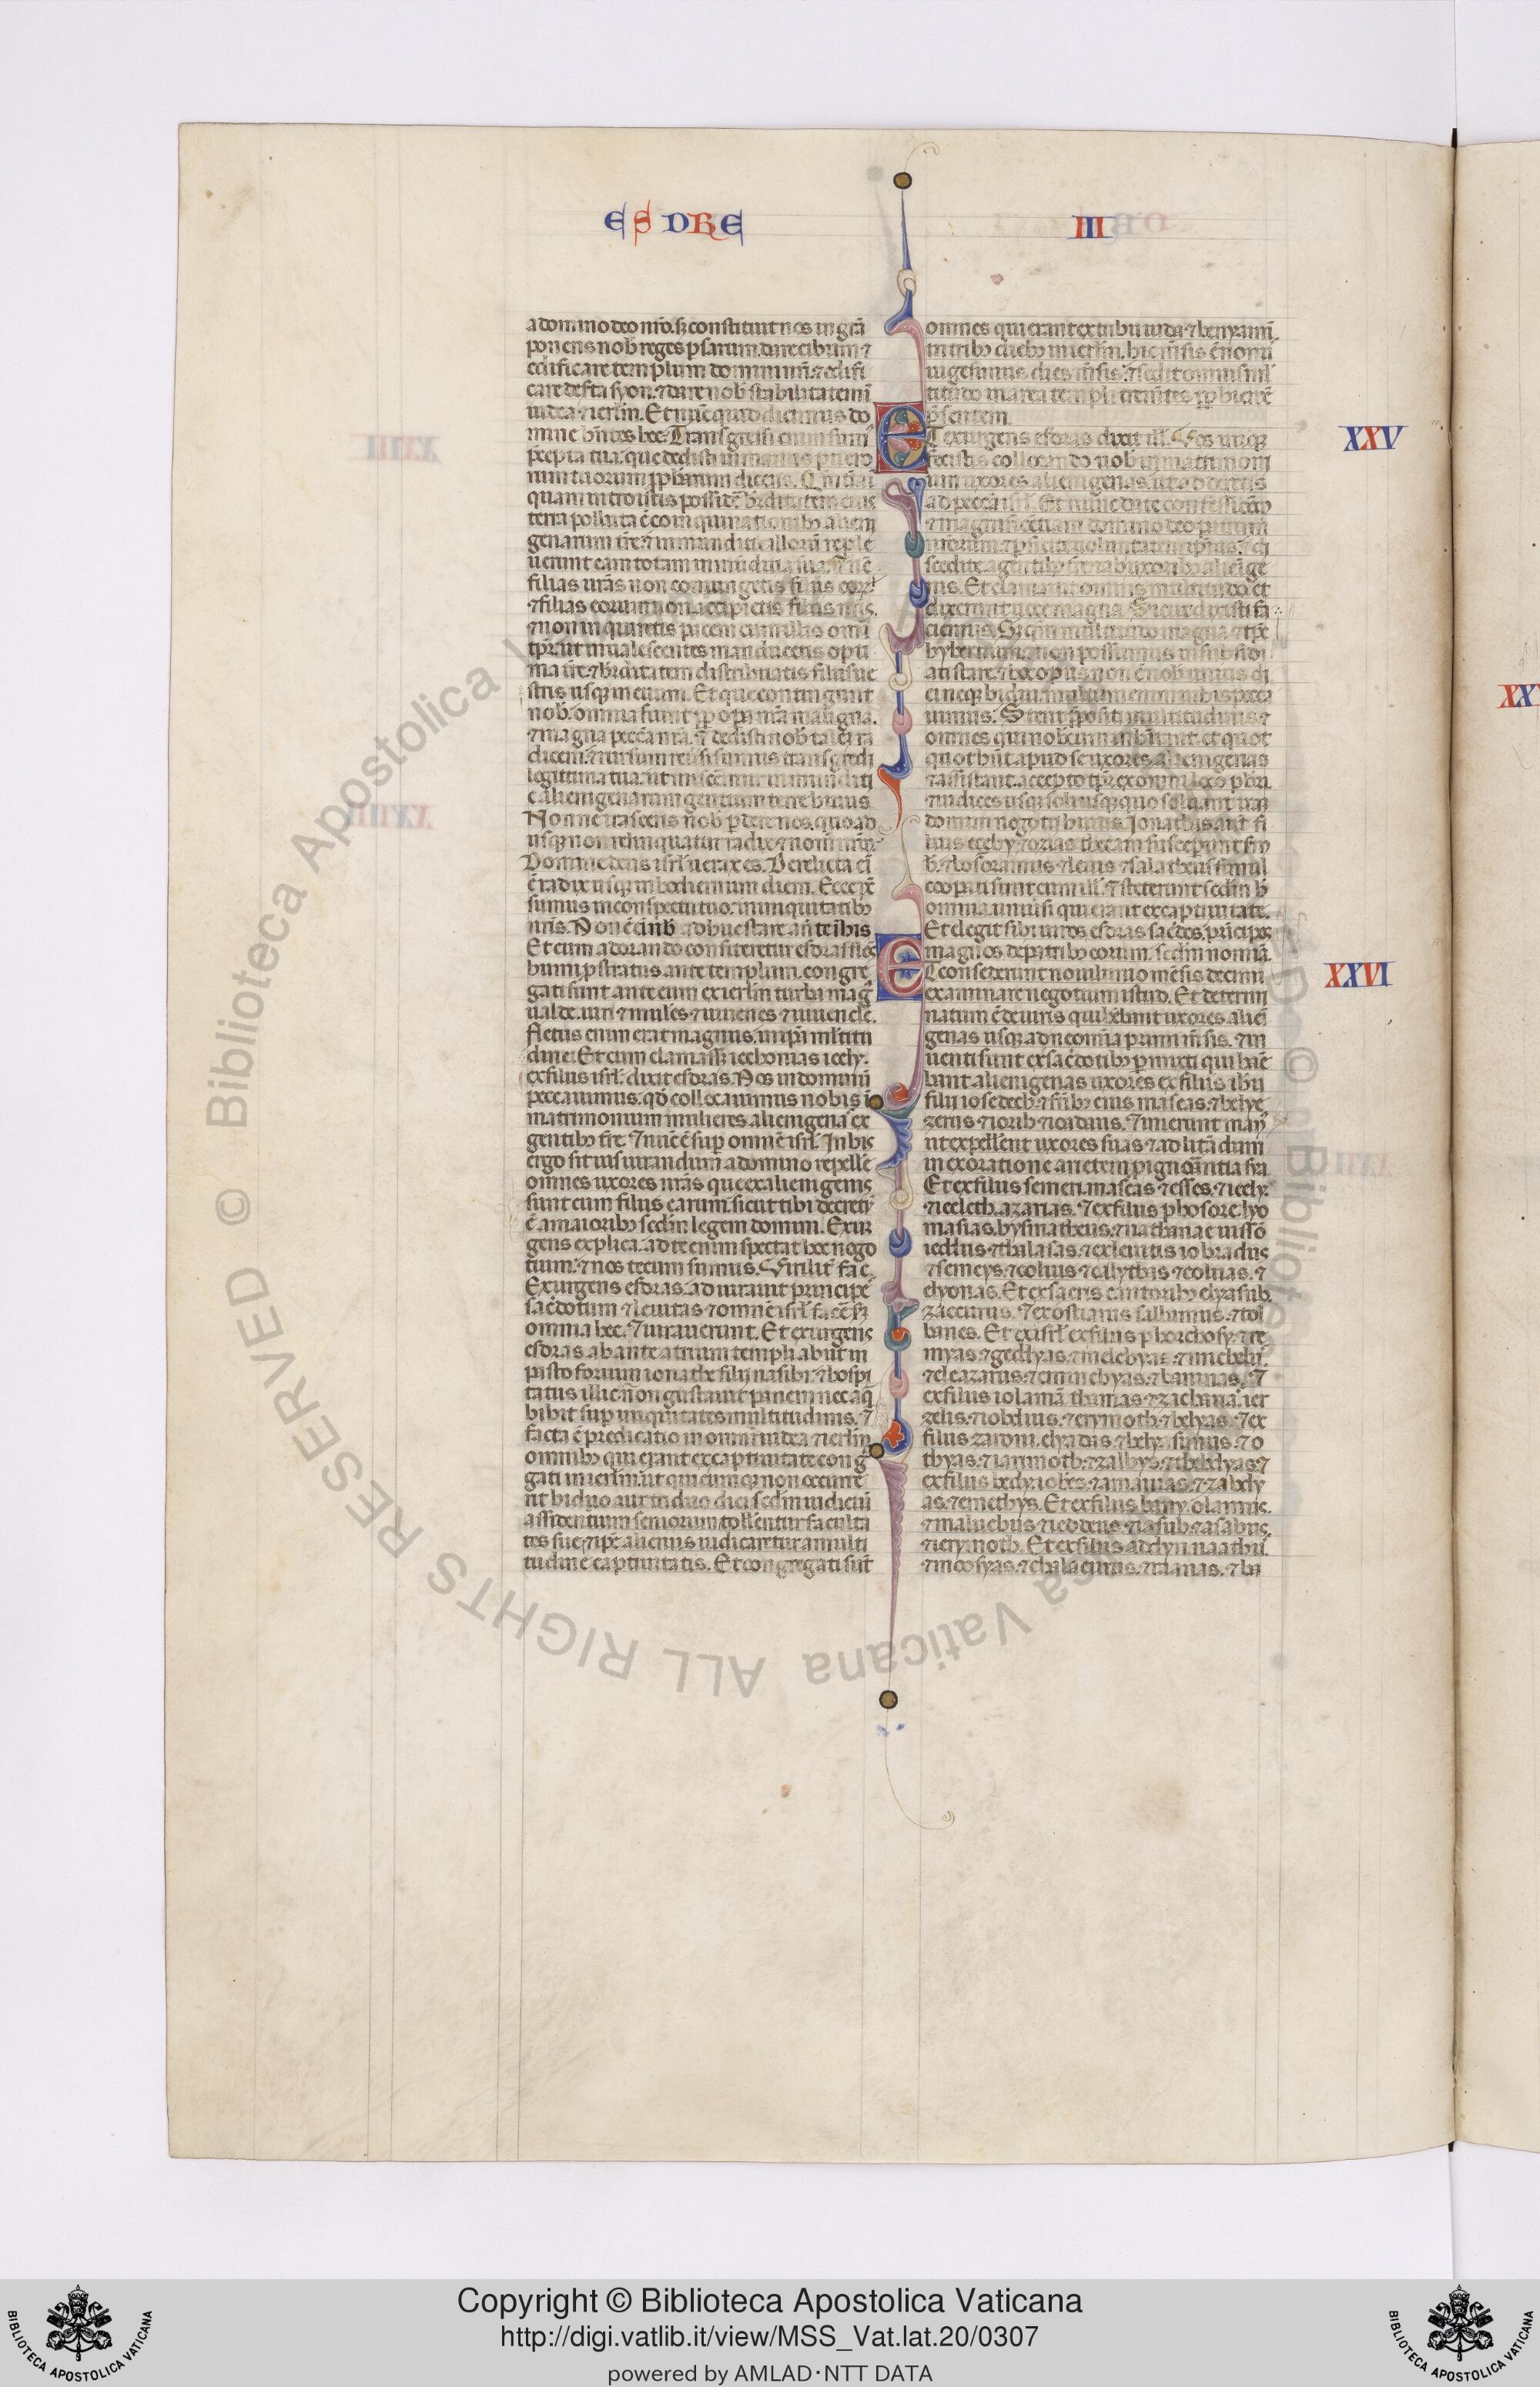 ESDRE III
a domino deo nr̄o. sꝫ constituit nos in grā
ponens nob̄ reges psarum. dare cibum ⁊
edificare templum domini nr̄i. ⁊ edifi
care deserta syon. ⁊ dare nob̄ stabilitatem ī
iudea ⁊ ierlm̄. Et nūc quid dicimus do
mine hn̄tes hec. Transgressi enim sum⁹
precepta tua. que dedisti in manus puero
rum tuorum ꝓphetarum dicens.
quam introistis possidē hereditatem eius
terra polluta ē coinquinationibꝫ alieni
genarum t̄re. ⁊ inmundicie illorū reple
uerunt eam totam inmūdicia sua. ⁊ nūc
filias ur̄as non coniungetis filiis eorꝫ
⁊ filias eorum non accipietis filiis ur̄is.
⁊ non inquiretis pacem cum illis omni
tp̄r. ut inualescentes manducetis opti
ma t̄re. ⁊ hereditatem distribuatis filiis ue
stris usqꝫ in euum. Et que contingunt
nob̄. omnia fiunt ꝓp opera nr̄a maligna.
⁊ magna peccata nr̄a. ⁊ dedisti nob̄ talem ra
dicem. ⁊ rursum reuersi sumus transgredi
legittima tua. ut misceremur inmundici
e alienigenarum gentium terre huius
Nonne irasceris nob̄ perdere nos. quoad
usqꝫ non relinquatur radix ⁊ nomen nr̄m.
Domine deus isrl̄ uerax es. Derelicta ē
ē radix usqꝫ in hodiernum diem. Ecce nūc
sumus in conspectu tuo. in iniquitatibꝫ
nris. Non ē enim adhuc stare an̄ te in his
Et cum adorando confiteretur esdras flēs
humi prostratus ante templum. congre
gati sunt ante eum ex ierlm̄ turba maḡ
ualde. uiri ⁊ mulieres ⁊ iuuenes ⁊ iuuencle.
fletus enim erat magnus. in ipsa multitu
dine. Et cum clamasset iechonias iecly.
ex filiis isrl̄. dixit esdras. Nos in dominū
peccauimus. qd̄ collocauimus nobis ī
matrimonium mulieres alienigenas ex
gentibꝫ t̄re. ⁊ nūc ē sup omnē isrl̄. In his
ergo sit uis iurandum a domino repellē
omnes uxores nr̄as que ex alienigenis
sunt cum filiis earum. sicut tibi decretū
ē a maioribꝫ scdm̄ legem domini. Exur
gens explica. ad te enim spectat hoc nego
tium. ⁊ nos tecum sumus. Viriliter fac.
Exurgens esdras. adiurauit principes
sacdotum ⁊ leuitas ⁊ omnē isrl̄ facē scdm̄
omnia hec. ⁊ iurauerunt. Et exurgens
esdras ab ante atrium templi abiit in
pastoforium ionathe filii nasibi. ⁊ hospi
tatus illic n̄ non gustauit panem nec aq̄
bibit sup iniquitates multitudinis. ⁊
facta ē predicatio in omni iudea ⁊ ierlm̄
omnibꝫ qui erant ex captiuitate congre
gati in ierlm̄. ut quicumqꝫ non occurre
rit biduo aut triduo die. scdm̄ iudiciū
assidentium seniorum. tollentur faculta
tes sue. ⁊ ipe alienus iudicaretur a multi
tudine captiuitatis. Et congregati sūt
omnes qui erant ex tribu iuda ⁊ beniamī.
in tribꝫ diebꝫ in ierlm̄. hic mēsis ē nonus
uigesimus dies mēsis. ⁊ sedit omnis mul
titudo in area templi trementes ꝓp hiemē
presentem
XXV
ET exurgens esdras dixit illis. Vos inique
fecistis collocando nob̄ in matrimoni
um uxores alienigenas. ut adderetis
ad peccata isrl̄. Et nunc date confessionem
⁊ magnificentiam domino deo patrum
nr̄orum. ⁊ perficite uoluntatem ipsius. ⁊ di
scedite a gentibꝫ t̄re ⁊ ab uxoribꝫ alienige
nis. Et clamauit omnis multitudo. et
dixerunt uoce magna. Sicut dixisti fa
ciemus. Sed quia multitudo magna ⁊ tp̄s
hybernum. ⁊ non possumus insubsidi
ati stare. ⁊ hoc opus non ē nob̄ unius di
ei neqꝫ bidui. multum enim in his pecca
uimus. Stent prepositi multitudinis ⁊
omnes qui nobiscum inhabitant. et quot
quot hn̄t apud se uxores alienigenas
⁊ assistant. accepto tp̄re ex omni loco pbri.
⁊ iudices usqꝫ soluant iram
domini negotii huius. Ionathas aut̄ fi
lius ezely. ⁊ ozias thecam susceperunt scdm̄
h̄. ⁊ bosoramus ⁊ leuis ⁊ satatheus simul
cooperati sunt cum ill̄. ⁊ steterunt scdm̄ h̄
omnia uniuersi qui erant ex captiuitate.
Et elegit sibi uiros esdras sacdos. principes
magnos de patribꝫ eorum. scdm̄ nomīa.
XXVI
ET consederunt nouilunio mēsis decimi
examinare negotium istud. Et determi
natum ē de uiris qui habebant uxores alieni
genas usqꝫ ad neomenia primi mēsis. ⁊ in
uenti sunt ex sacdotibꝫ permixti qui habe
bant alienigenas uxores. ex filiis ihū
filii iosedech ⁊ fratribꝫ eius maseas. ⁊ helye
zerus ⁊ iorib ⁊ ioadeus. ⁊ iniecerunt manꝰ
ut expellerent uxores suas. ⁊ ad litandum
in exoratione arietem pro ignorantia sua
Et ex filiis semeri. maseas ⁊ esses. ⁊ ieely.
⁊ eeleth. azarias. ⁊ ex filiis phosore. lyo
masias. hysmatheus. ⁊ nathanae. uissio
iedhus ⁊ thalasas. ⁊ ex leuitis iobradus
⁊ semeys. ⁊ colius ⁊ calythas ⁊ coluas. ⁊
elyonas. Et ex sacris cantoribꝫ elyasub.
zaccurus. ⁊ ex ostiariis sallumus. ⁊ tol
banes. Et ex isrl̄ ex filiis phorchosy. ⁊ re
myas. ⁊ geddyas. ⁊ melchyas. ⁊ michelu.
⁊ eleazarus. ⁊ emmebyas. ⁊ bannas. ⁊
ex filiis iolaman. thamas. ⁊ zacharias. ier
zelis. ⁊ iobdius. ⁊ erymoth. ⁊ helyas. ⁊ ex
filiis zarom. elyadas ⁊ helya simus. ⁊ o
thyas. ⁊ iarimoth. ⁊ zalbys. ⁊ thebdyas. ⁊
ex filiis bedy. iohes. ⁊ amanias. ⁊ zabdy
as. ⁊ emethys. Et ex filiis bany. olamus.
⁊ maluchus ⁊ ieddeus. ⁊ iasub. ⁊ asabus.
⁊ ierymoth. Et ex filiis addyn. naathus.
⁊ moosyas. ⁊ chalacenus. ⁊ ranas. ⁊ ba
Copyright © Biblioteca Apostolica Vaticana
http://digi.vatlib.it/view/MSS_Vat.lat.20/0307
powered by AMLAD·NTT DATA
BIBLIOTECA APOSTOLICA VATICANA
BIBLIOTECA APOSTOLICA VATICANA
© Biblioteca Apostolica Vaticana ALL RIGHTS RESERVED